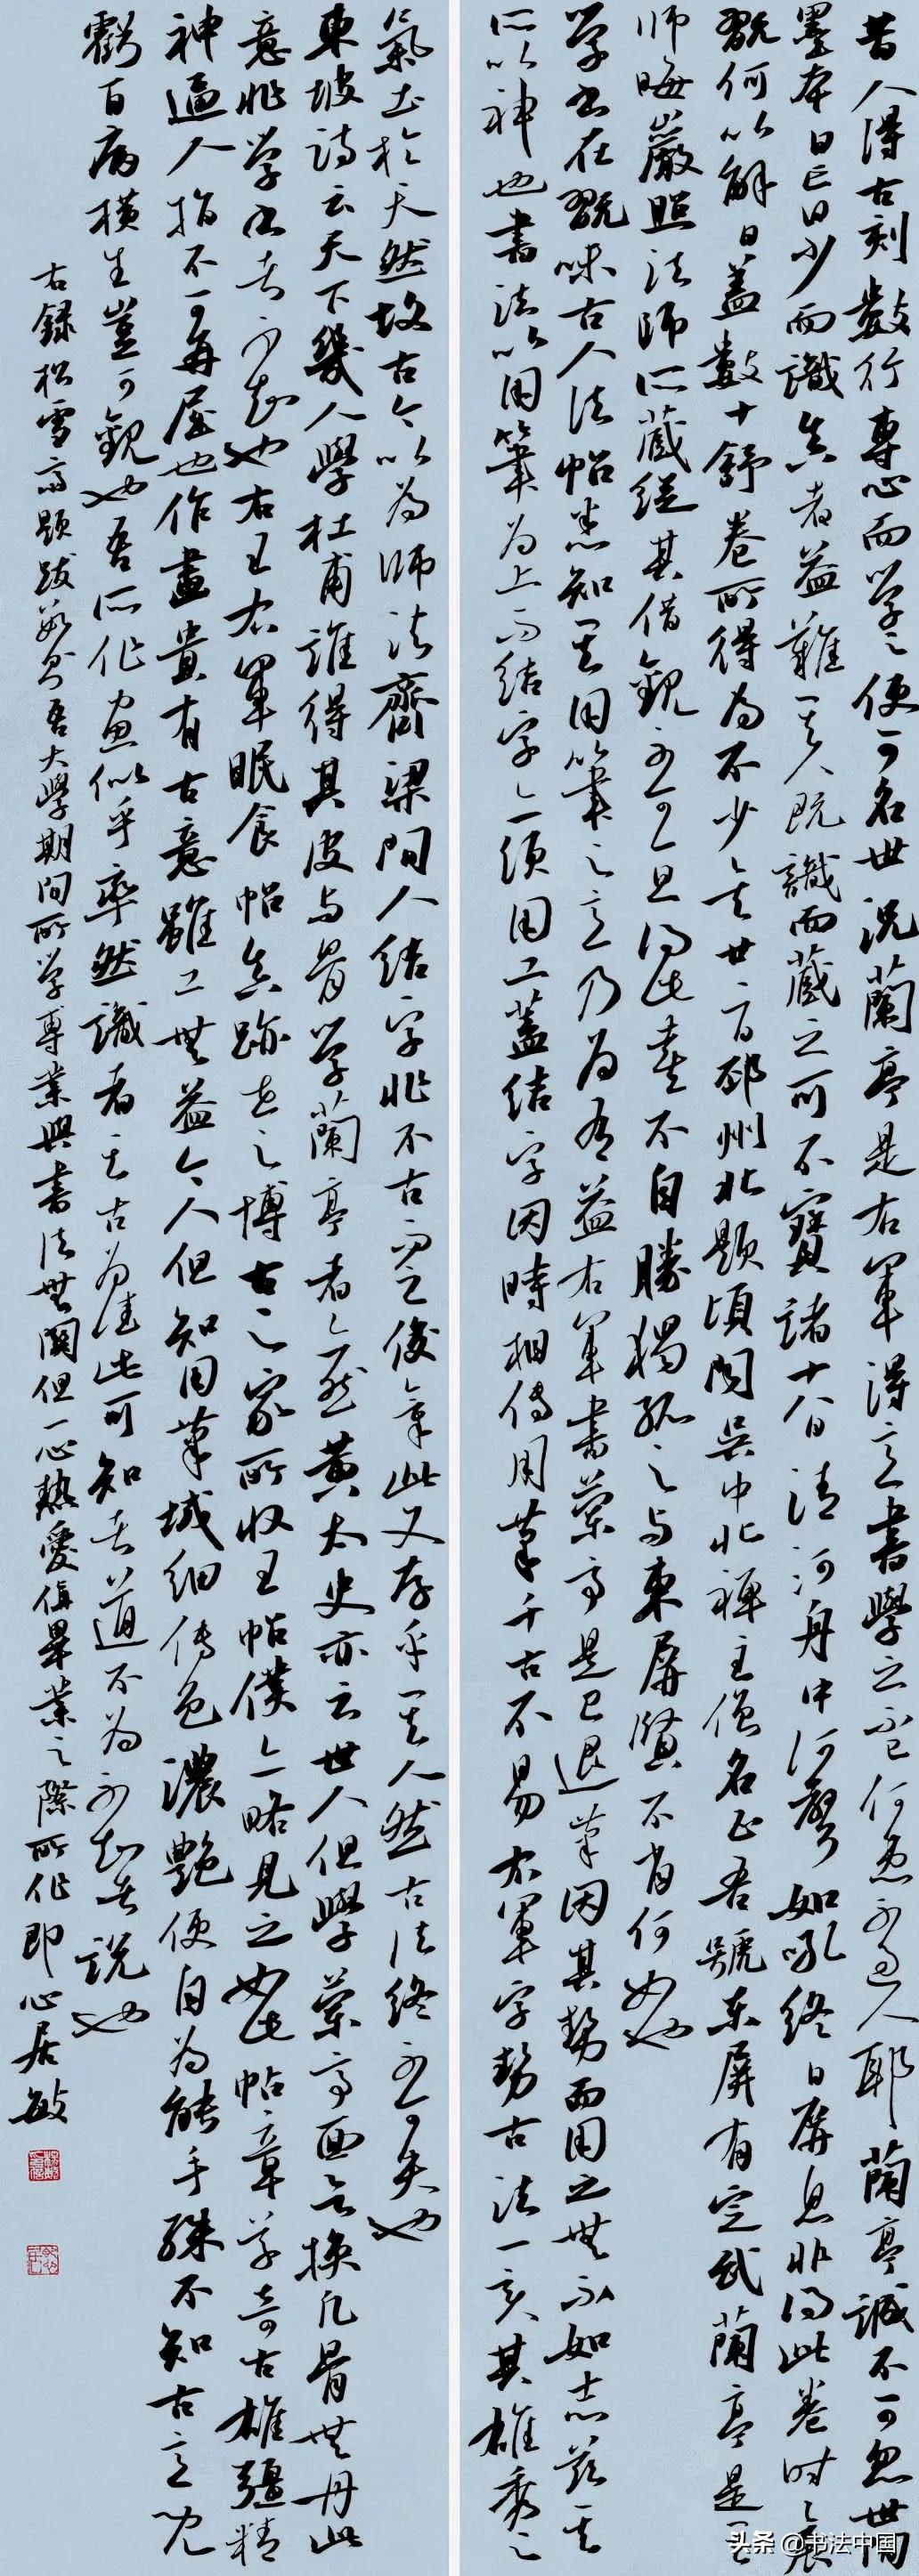 昔人得古刻數行專心而學之便可名世況蘭亭是右軍得意書學之不已何患不過人耶蘭亭誠不可忽世間
墨本日亡日少而識真者益難其人既識而藏之可不寶諸十八日清河舟中河聲如吼終日屏息非得此卷時時展
翫何以解日蓋數十舒卷所得為不少矣廿二日邳州北題頃聞吳中北禪主僧名正吾號東屏有定武蘭亭是其
師晦巖照法師所藏從其借觀不可一旦得此喜不自勝獨孤之與東屏賢不肖何如也
學書在翫味古人法帖悉知其用筆之意乃為有益右軍書蘭亭是已退筆因其勢而用之無不如志茲其
所以神也書法以用筆為上而結字亦須用工蓋結字因時相傳用筆千古不易右軍字勢古法一變其雄秀之
氣出於天然故古今以為師法齊梁間人結字非不古而乏俊氣此又存乎其人然古法終不可失也
東坡詩云天下幾人學杜甫誰得其皮與骨學蘭亭者亦然黃太史亦云世人但學蘭亭面欲換凡骨無丹此
意非學書者不知也右王右軍眠食帖真跡世之博古之家所收王帖僕亦略見之如此帖章草奇古雄彊精
神逼人指不可再屈也作畫貴有古意雖工無益今人但知用筆纖細傅色濃艷便自為能手殊不知古意既
虧百病橫生豈可觀也吾所作畫似乎率然識者知其古為佳此可知者道不為不知者說也
右錄松雪齋題跋數則吾大學期間所學專業與書法無關但一心熱愛值畢業之際所作即心居敏
头条 @书法中国